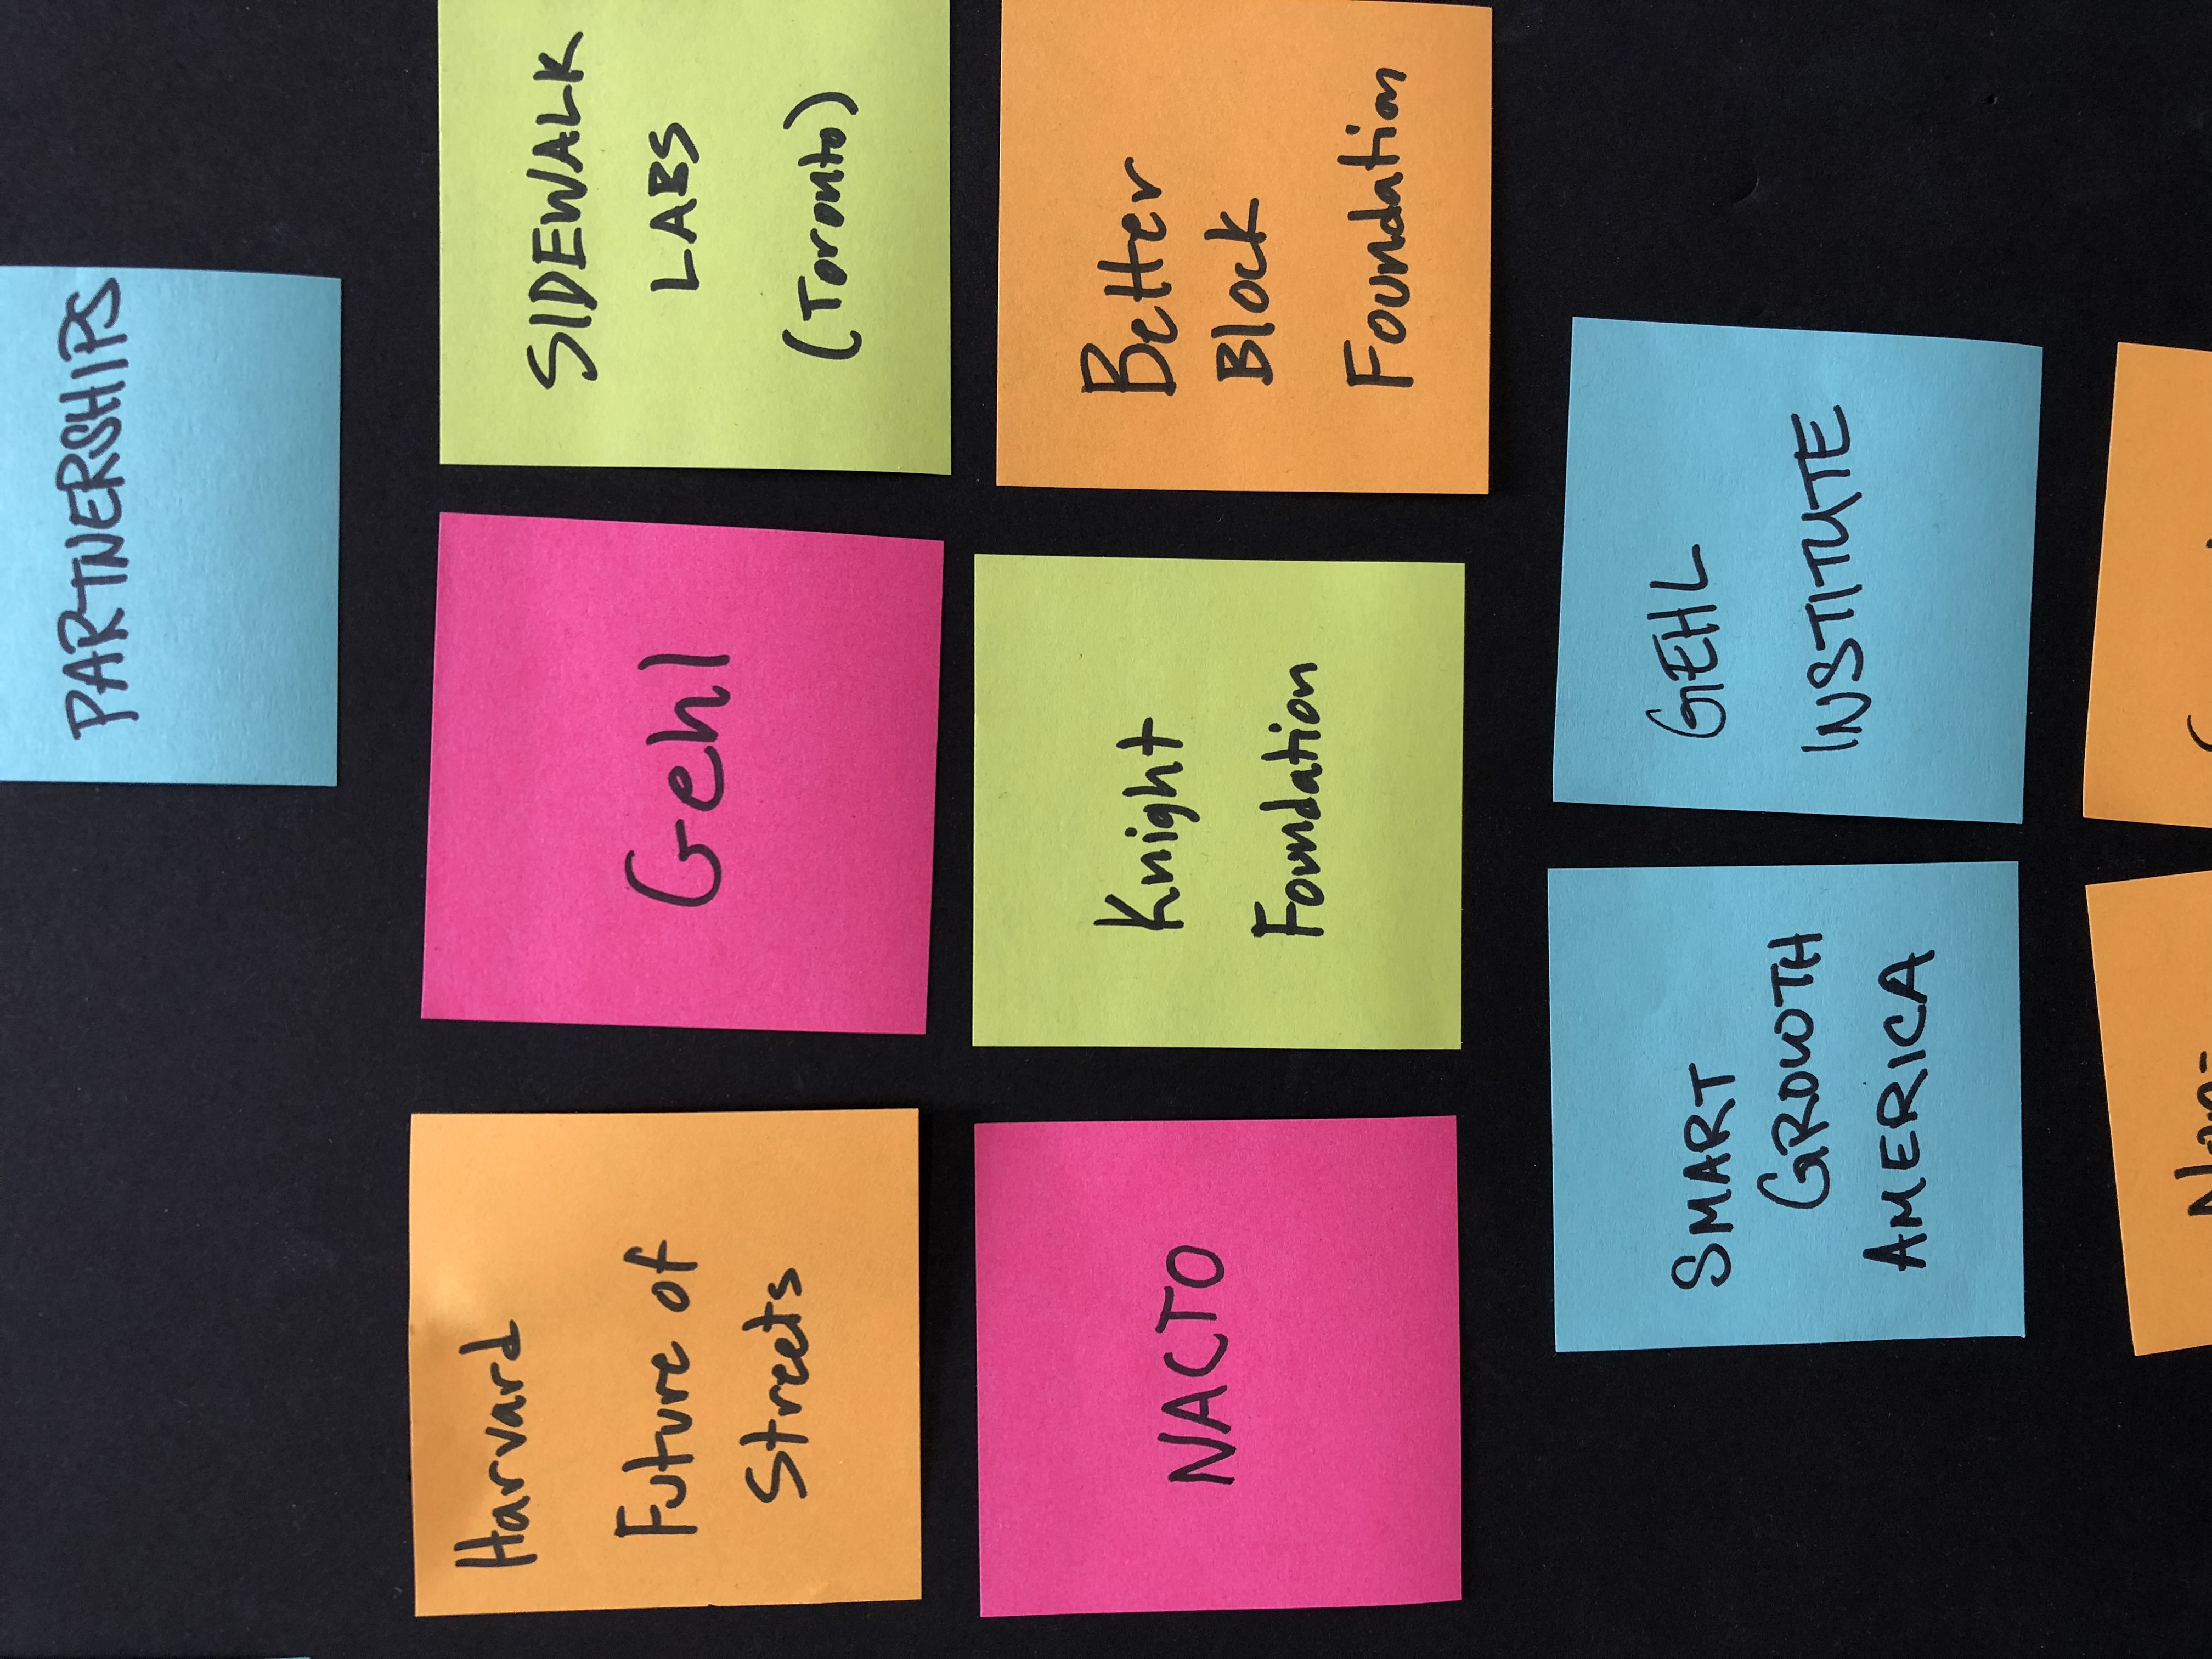 PARTNERSHIPS
Harvard
Future of
Streets
Gehl
SIDEWALK
LABS
(Toronto)
NACTO
Knight
Foundation
Better
Block
Foundation
SMART
GROWTH
AMERICA
GEHL
INSTITUTE
Non-